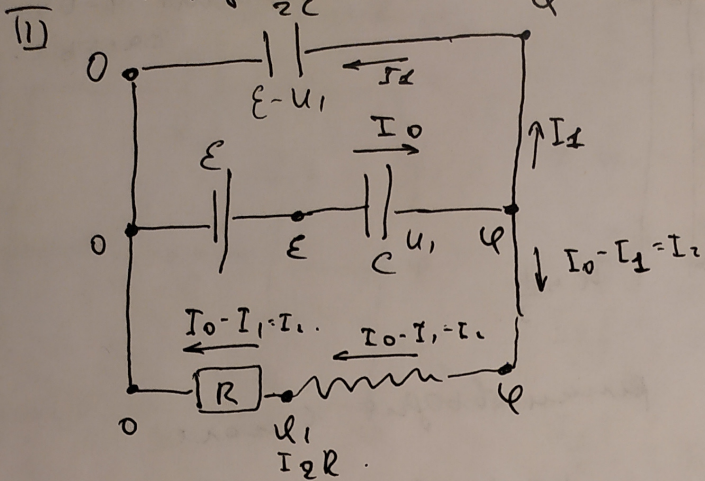 II)
2C
φ
0
I1
ℰ-U1
I0
I1
ℰ
0
ℰ
C
U1
φ
I0-I1=I2
I0-I1=I2.
I0-I1=I2
R
0
φ1
φ
I2R.